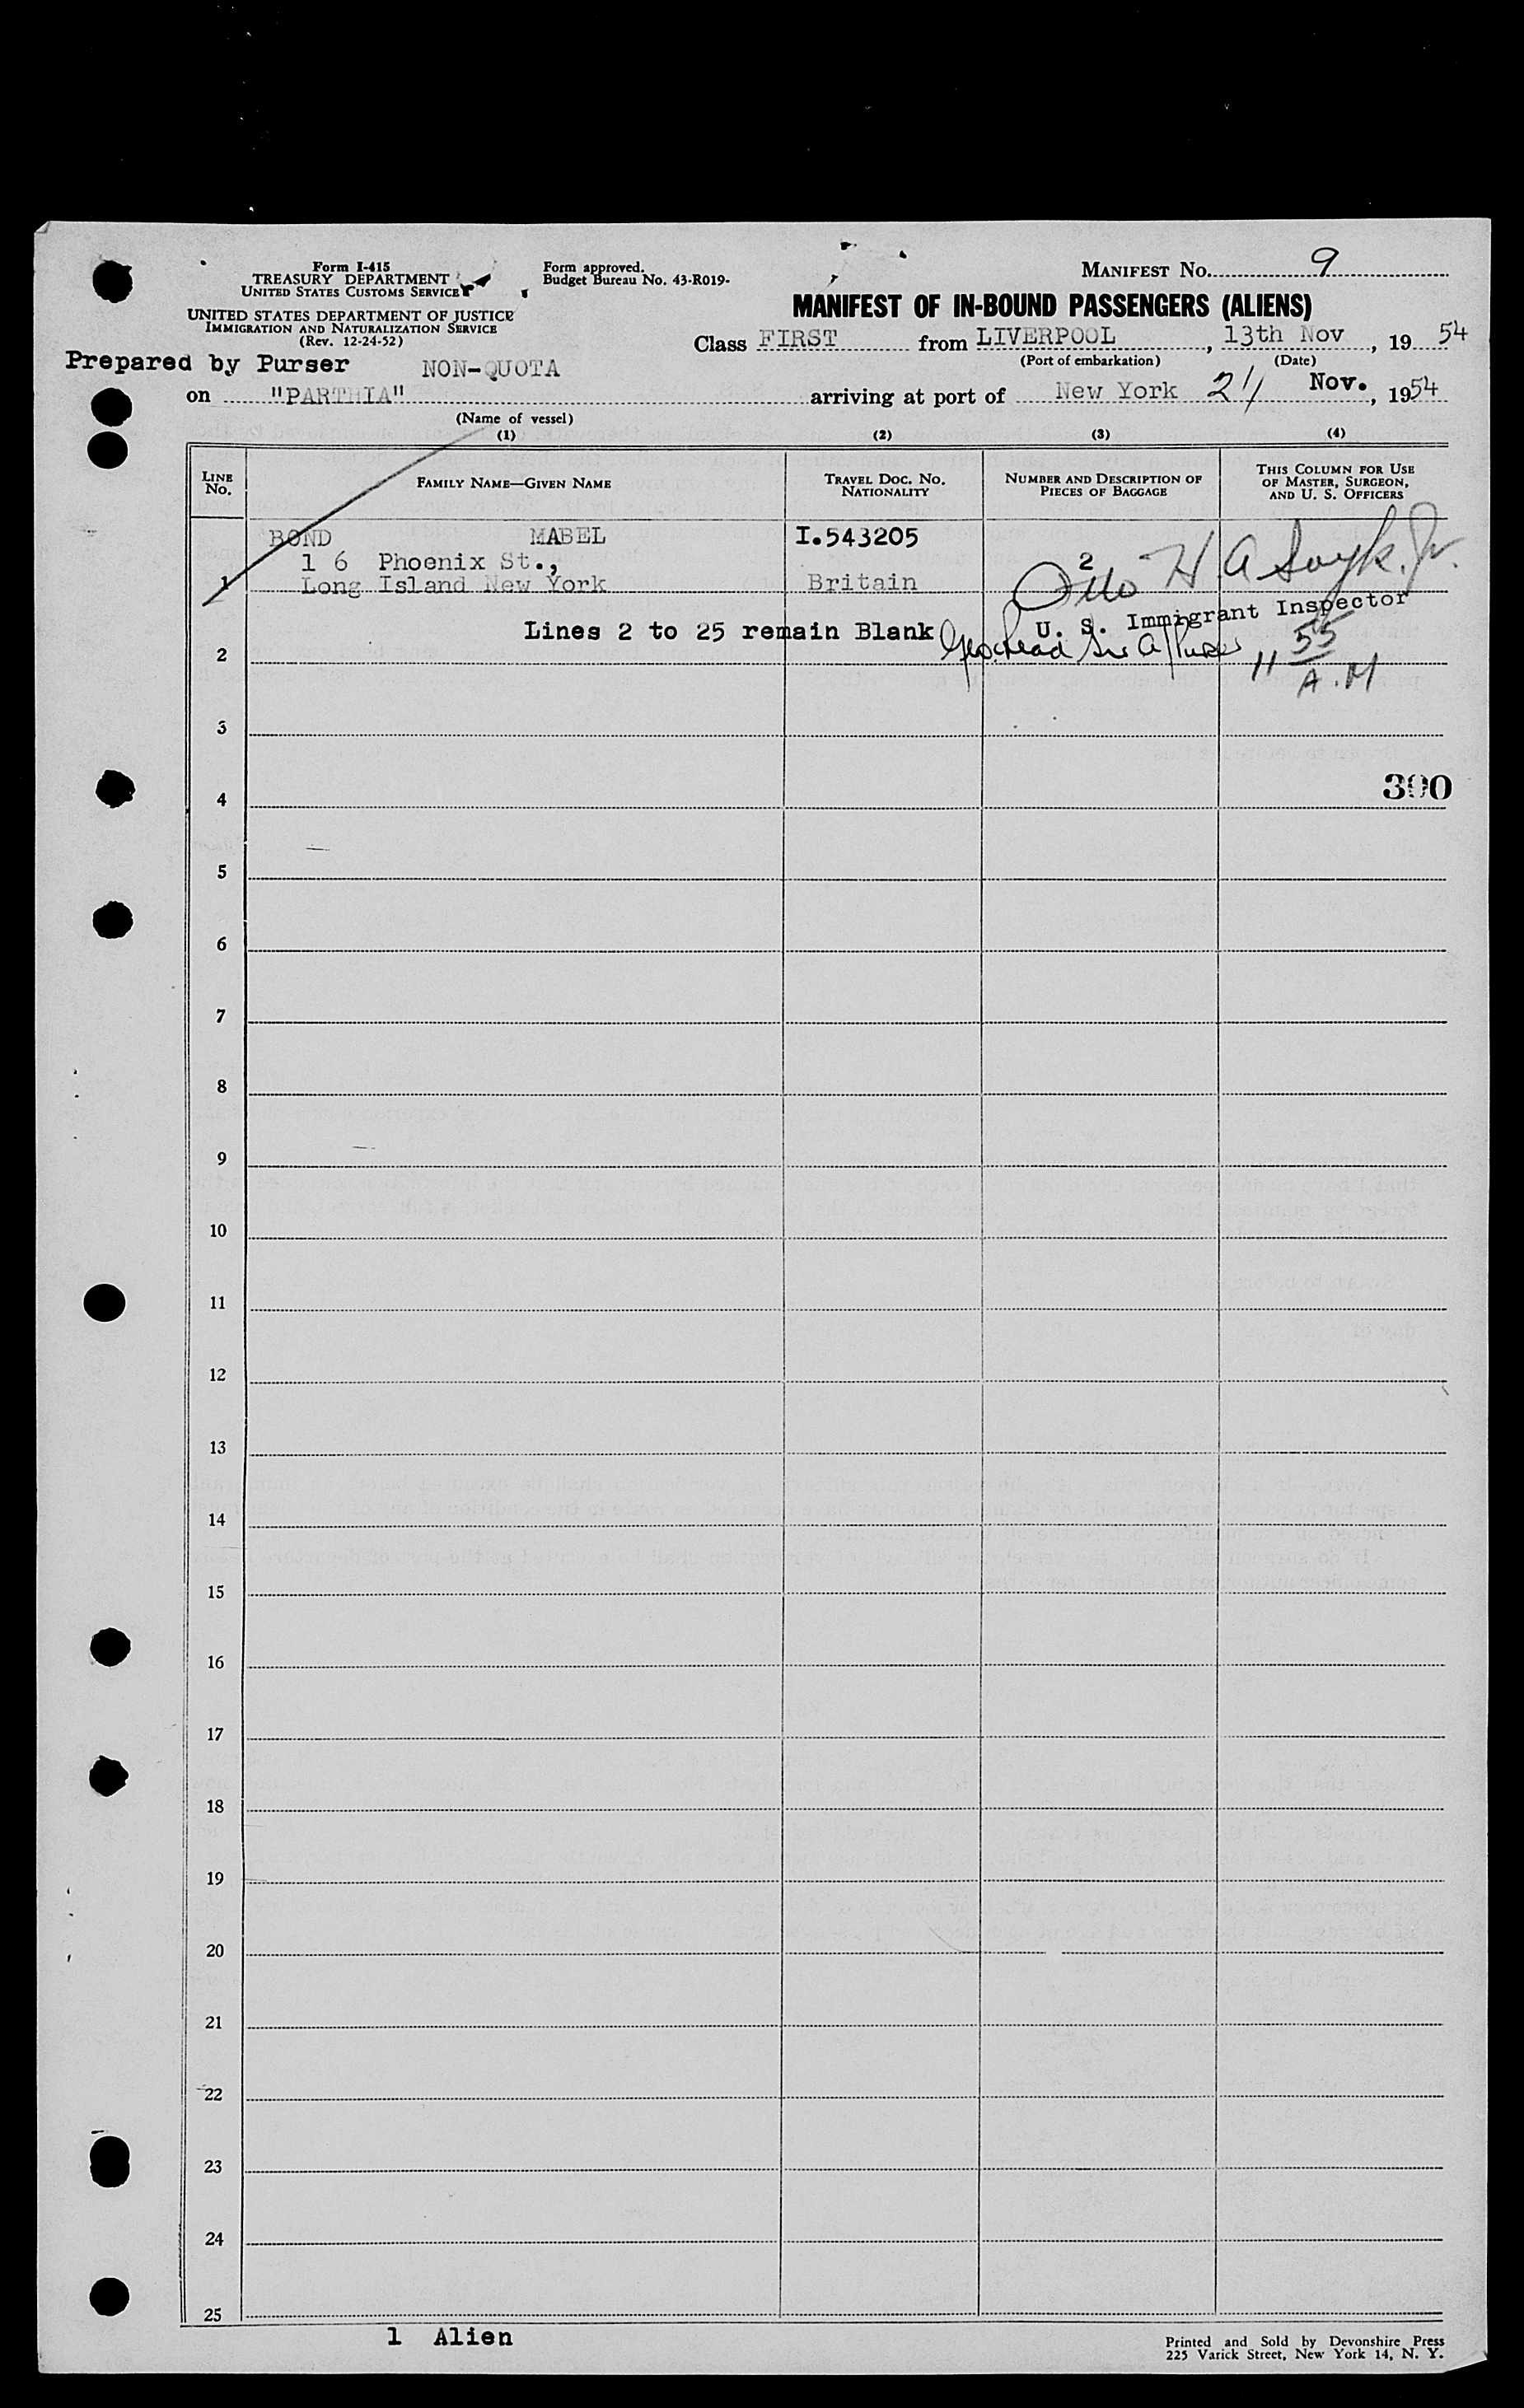 Form I-415
TREASURY DEPARTMENT
UNITED STATES CUSTOMS SERVICE
UNITED STATES DEPARTMENT OF JUSTICE
IMMIGRATION AND NATURALIZATION SERVICE
(Rev. 12-24-52)
Form approved.
Budget Bureau No. 43-R019-
MANIFEST No. 9
MANIFEST OF IN-BOUND PASSENGERS (ALIENS)
Class FIRST from LIVERPOOL, 13th Nov, 1954
(Port of embarkation) (Date)
Prepared by Purser NON-QUOTA
on "PARTHIA" arriving at port of New York Nov., 1954
(Name of vessel)
(1) (2) (3) (4)
LINE No. FAMILY NAME—GIVEN NAME TRAVEL DOC. No. NATIONALITY NUMBER AND DESCRIPTION OF PIECES OF BAGGAGE THIS COLUMN FOR USE OF MASTER, SURGEON, AND U. S. OFFICERS
BOND MABEL I.543205
16 Phoenix St., 2
1 Long Island New York Britain Otto H A
U. S. Immigrant Inspector
Lines 2 to 25 remain Blank
2 11 55 A.M
3
4 300
5
6
7
8
9
10
11
12
13
14
15
16
17
18
19
20
21
22
23
24
25
1 Alien
Printed and Sold by Devonshire Press
225 Varick Street, New York 14, N. Y.